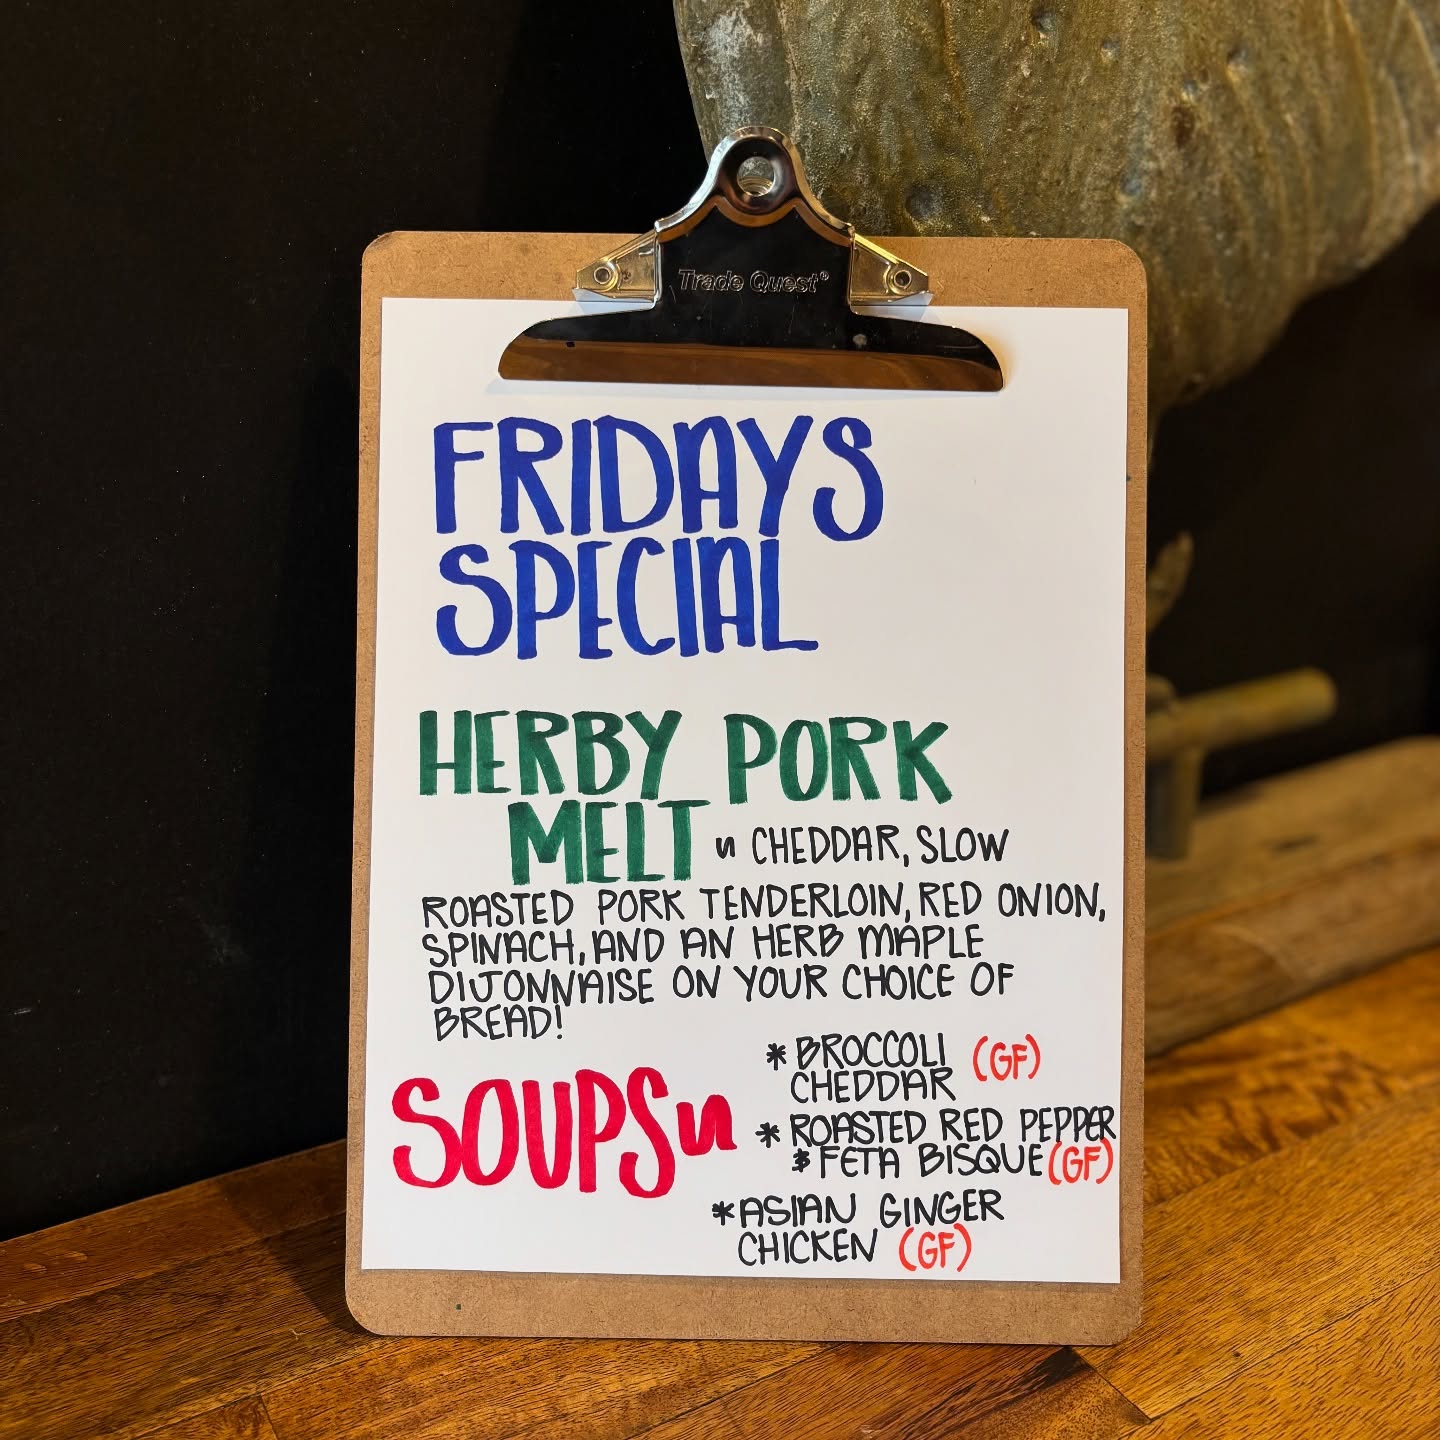 Trade Quest®
FRIDAYS
SPECIAL
HERBY PORK
MELT " CHEDDAR, SLOW
ROASTED PORK TENDERLOIN, RED ONION,
SPINACH, AND AN HERB MAPLE
DIJONNAISE ON YOUR CHOICE OF
BREAD!
SOUPS "
* BROCCOLI (GF)
CHEDDAR
* ROASTED RED PEPPER
& FETA BISQUE (GF)
* ASIAN GINGER
CHICKEN (GF)